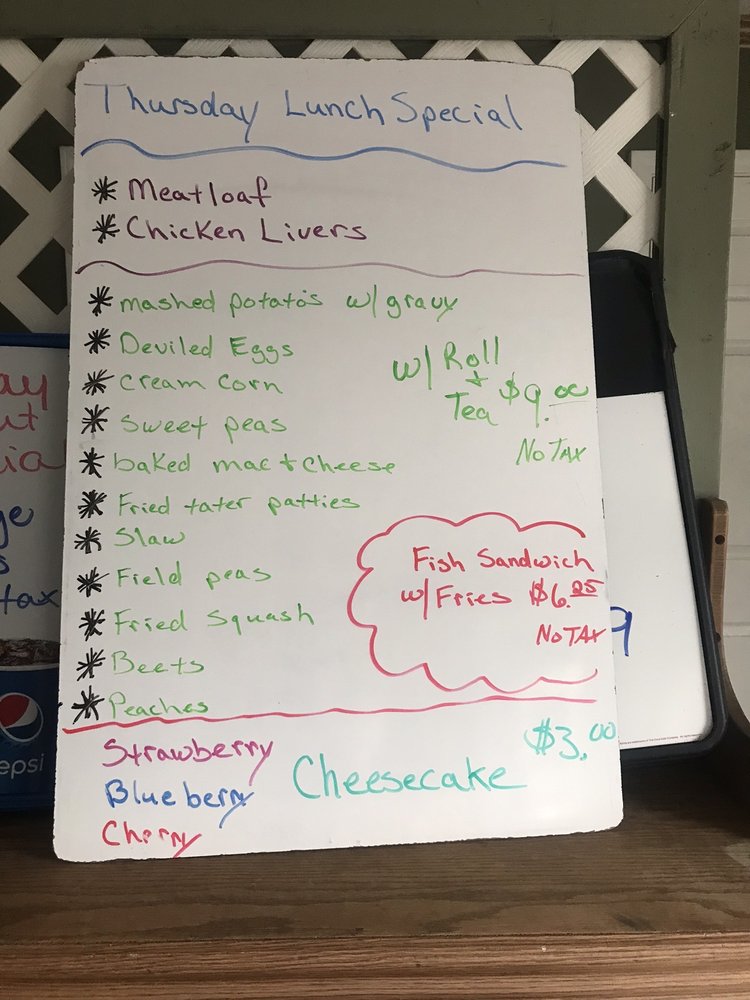 Thursday Lunch Special
* Meatloaf
* Chicken Livers
* mashed potato's w/ gravy
* Deviled Eggs
* cream corn
* sweet peas
* baked mac + cheese
* Fried tater patties
* Slaw
* Field peas
* Fried Squash
* Beets
* Peaches
w/ Roll
+
Tea $9.00
No TAX
Fish Sandwich
w/ Fries $6.25
No TAX
Strawberry
Blueberry
Cherry
Cheesecake
$3.00
tax
epsi
9